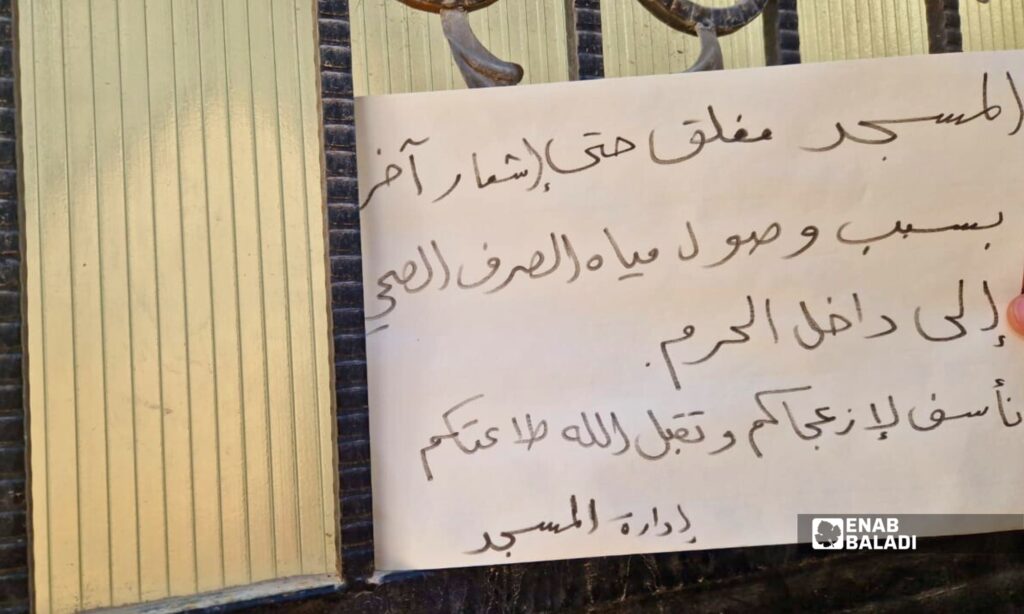 المسجد مغلق حتى إشعار آخر
بسبب وصول مياه الصرف الصحي
إلى داخل الحرم.
نأسف لإزعجاكم وتقبل الله طاعتكم
إدارة المسجد
ENAB
BALADI